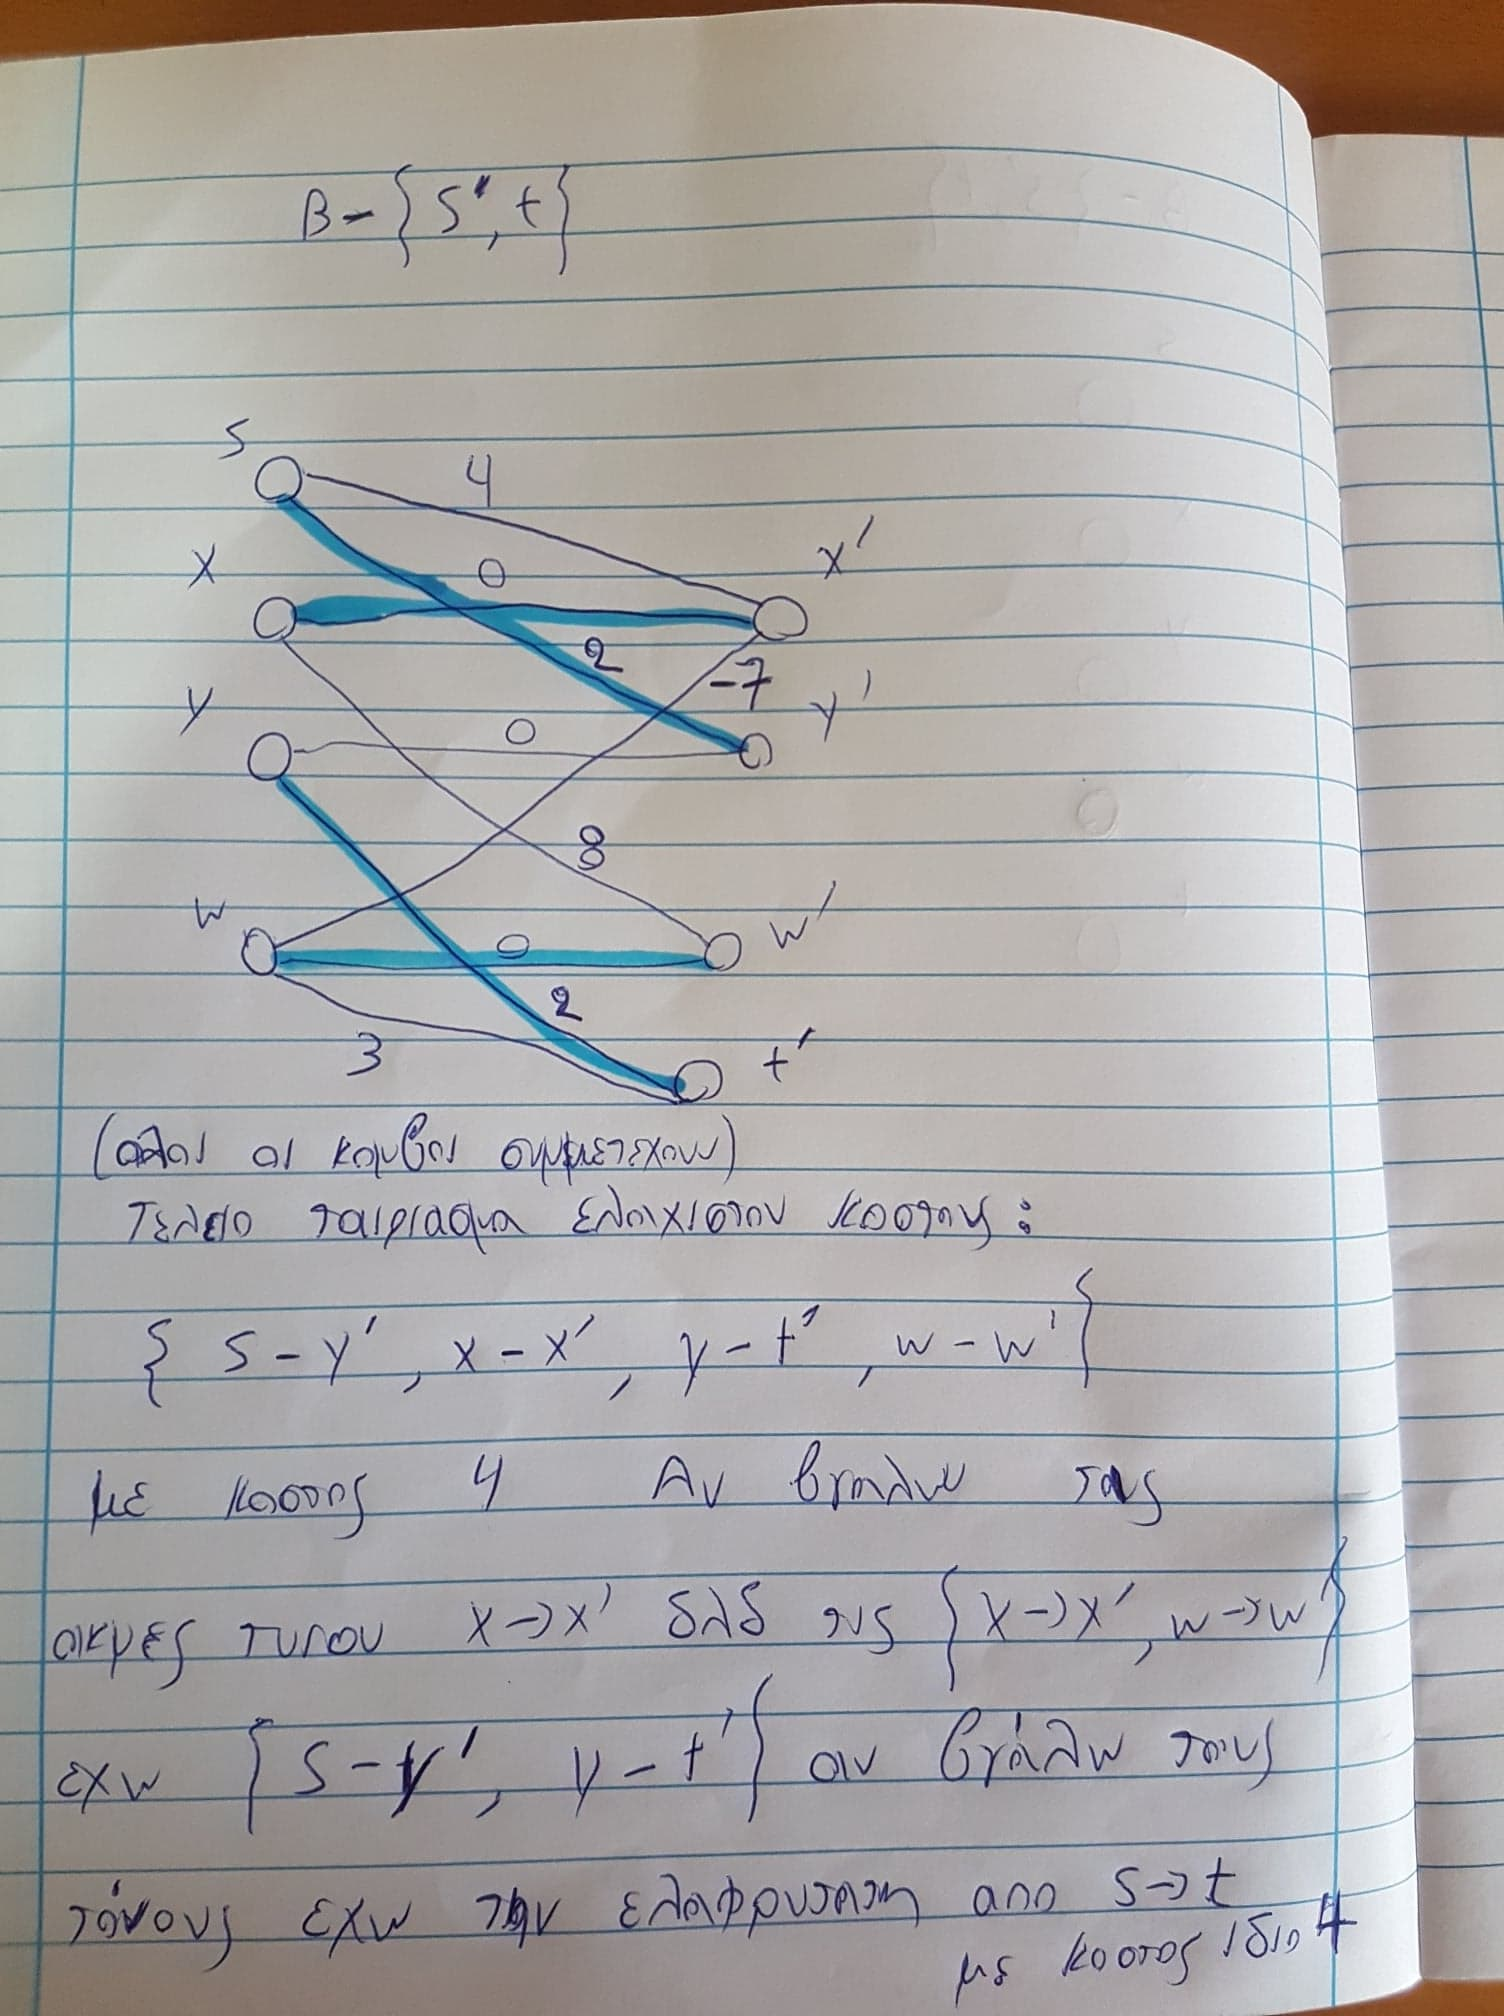 B-{s',t}
s
4
x
0
x'
2
-7
y
y'
0
8
w
0
w'
2
3
t'
(ολοι οι κομβοι συμμετεχουν)
Τελειο ταιριασμα ελαχιστου κοστους:
{ s-y', x-x', y-t', w-w' }
με κοστος 4 Αν βγαλω τις
ακμες τυπου x->x' δλδ τις {x->x', w->w'}
εχω {s-y', y-t'} αν βγάλω τους
τόνους εχω την ελαφρυτατη απο s->t
με κοστος ιδιο 4